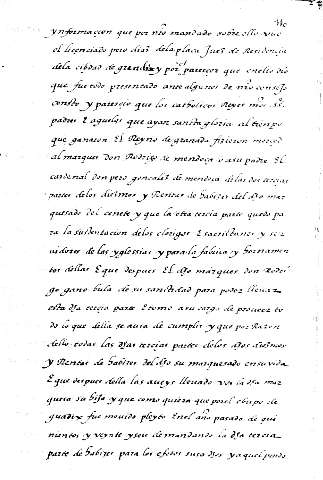 ynformacion que por nro mandado sobre ello uvo
el licenciado pero diaz de la plaça Juez de Residencia
dela cibdad de y por el parescer que enello dio
que fue todo presentado ante algunos de nro consejo
consto y parescio que los catholicos Reyes mis
padres E aguelos que ayan santa gloria al tiempo
que ganaron El Reyno de granada fizieron merced
al marques don Rodrigo de mendoça o a su padre El
cardenal don pero gonçalez de mendoça delas dos tercias
partes delos diezmos y Rentas de habizes del dho mar
quesado del cenete y que la otra tercia parte quedo pa
ra la sustentacion delos clerigos E sacristanes y ser
vidores de las yglesias y para la fabrica y hornamen
tos dellas E que despues El dho marques don Rodri
go gano bula de su santidad para poder llevar
esta dha tercia parte E tomo a su cargo de proveer to
do lo que della se avia de cumplir y que por Razon
dello todas las dhas tercias partes delos dhos diezmos
y Rentas de habizes del dho su marquesado en su vida
E que despues della las aveys llevado vos la dha mar
quesa su hija y que como quiera que por el obispo de
guadix fue movido pleyto Enel año pasado de qui
nientos y veynte y seys demandando la dha tercia
parte de habizes para los efetos suso dhos y aquel pendo